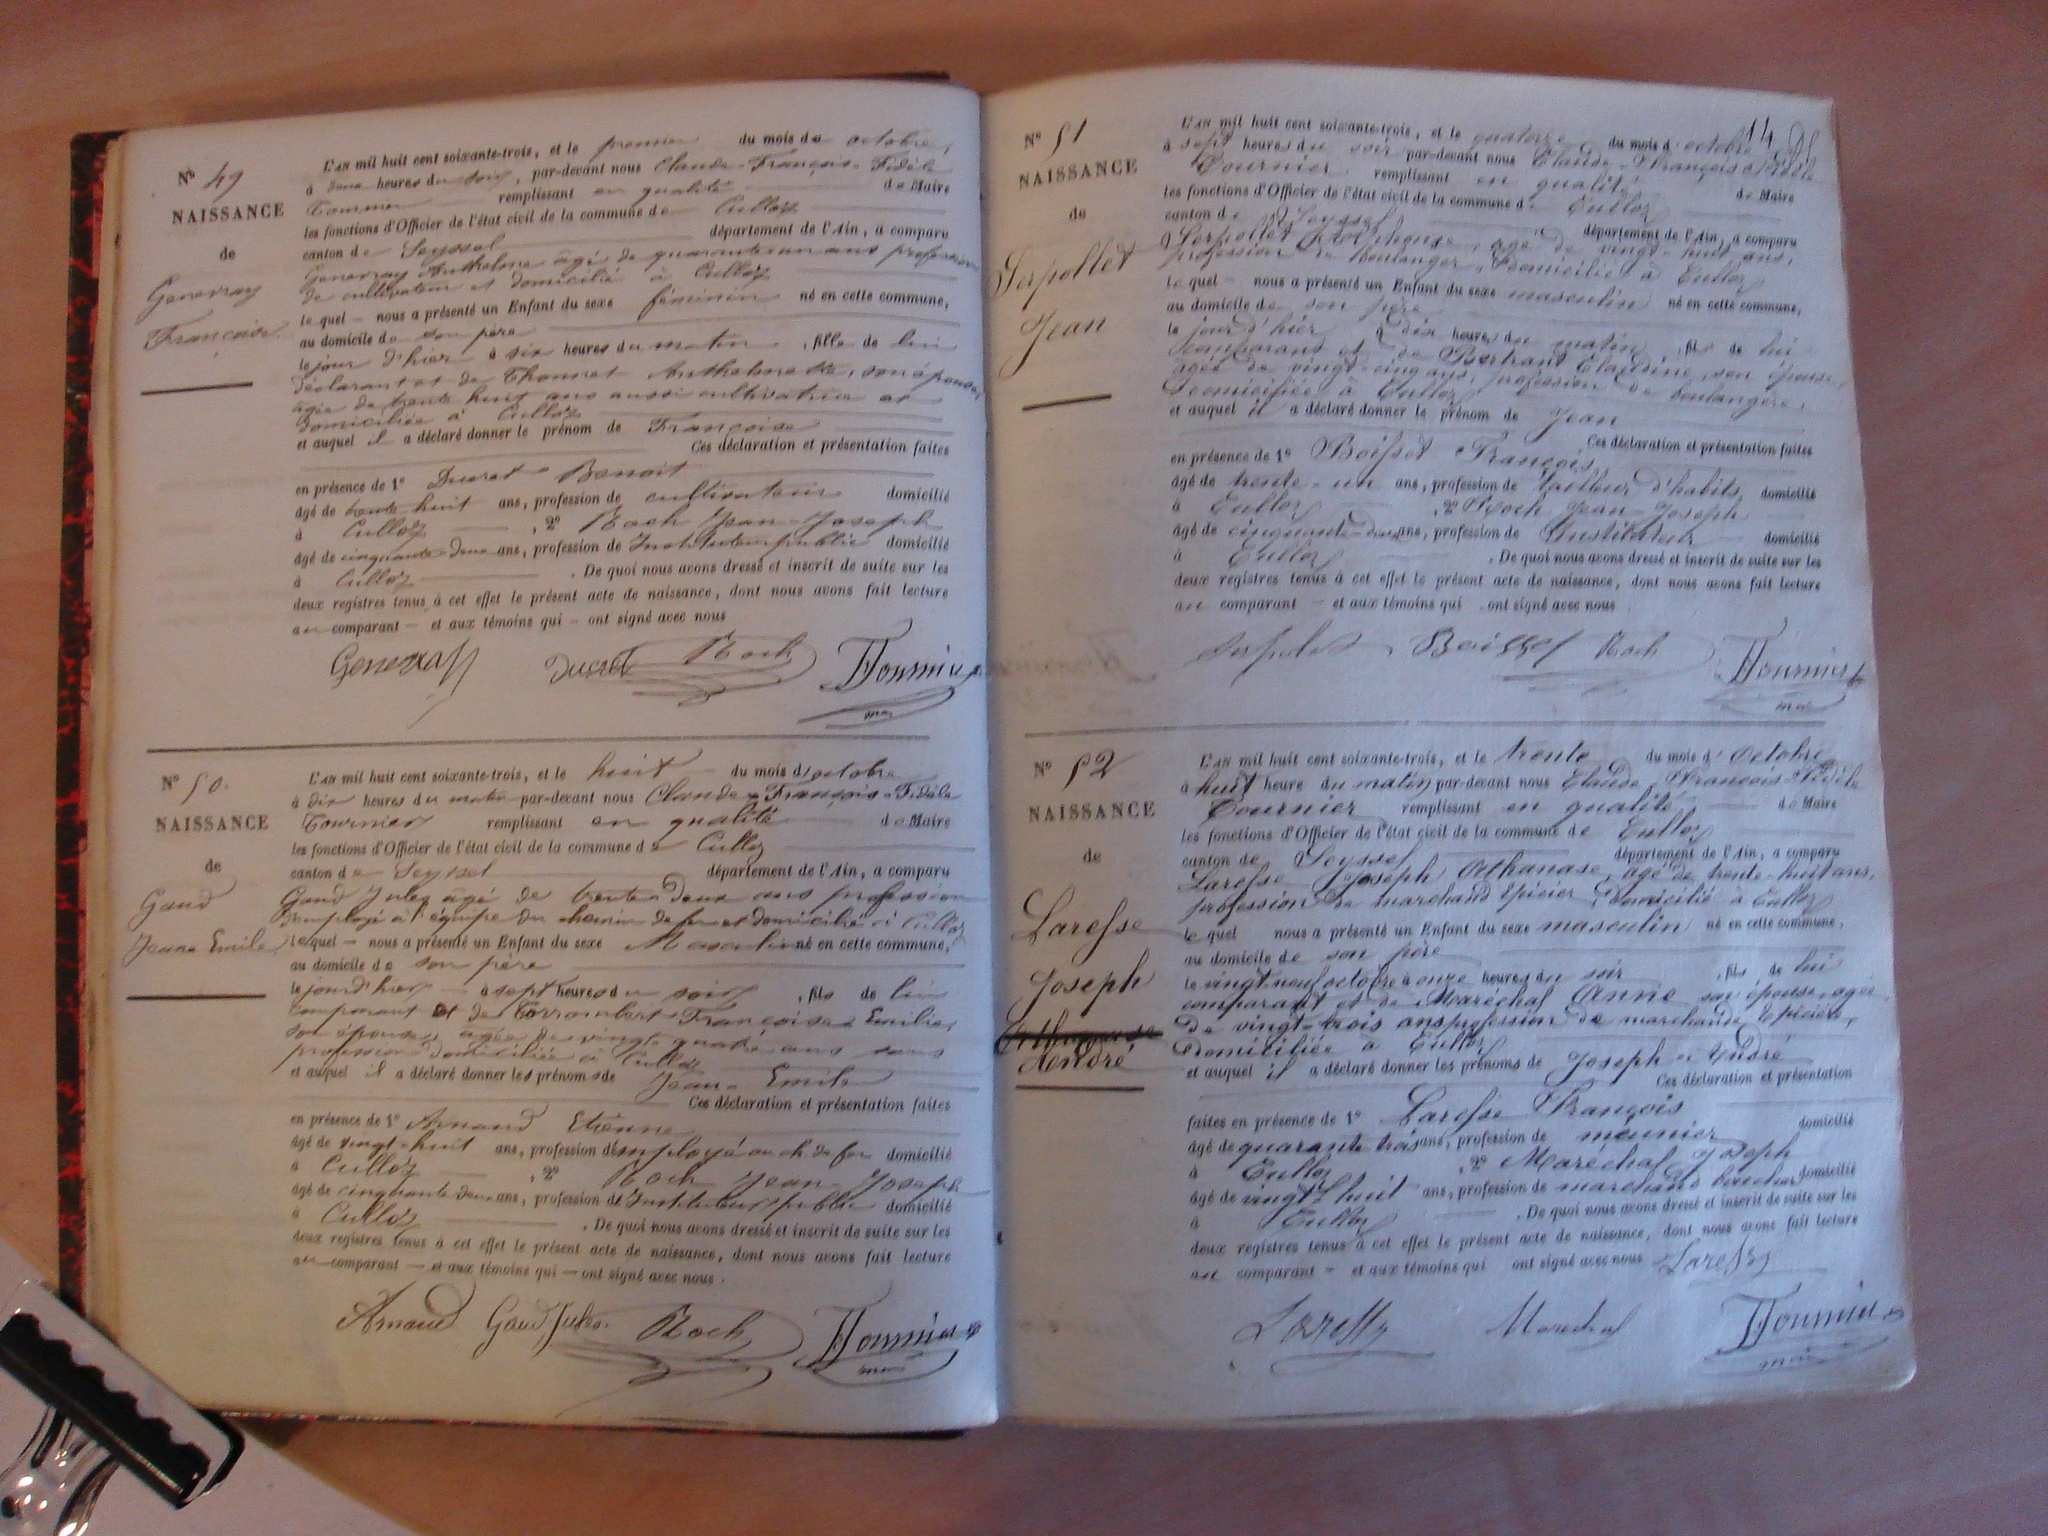 N° 49
NAISSANCE
de
Genevray
Françoise
L'AN mil huit cent soixante-trois, et le premier du mois de octobre,
à heures du soir, par-devant nous Claude-François-Fidèle
Tournier remplissant en qualité de Maire
les fonctions d'Officier de l'état civil de la commune de Culloz
canton de Seyssel département de l'Ain, a comparu
Genevray Anthelme âgé de quarante un ans profession
de cultivateur et domicilié à Culloz
le quel nous a présenté un Enfant du sexe féminin né en cette commune,
au domicile de son père
le jour d'hier à six heures du matin, fille de lui
déclarant et de Anthelmette, son épouse,
agée de trente huit ans aussi cultivatrice et
domiciliée à Culloz
et auquel il a déclaré donner le prénom de Françoise
Ces déclaration et présentation faites
en présence de 1° Ducret Benoit
âgé de trente huit ans, profession de cultivateur domicilié
à Culloz, 2° Roch Jean-Joseph
âgé de cinquante deux ans, profession de Instituteur public domicilié
à Culloz. De quoi nous avons dressé et inscrit de suite sur les
deux registres tenus à cet effet le présent acte de naissance, dont nous avons fait lecture
au comparant et aux témoins qui ont signé avec nous
Genevray Ducret Roch Tournier
maire
N° 50.
NAISSANCE
de
Gaud
Jean Emile
L'AN mil huit cent soixante-trois, et le huit du mois d'octobre
à dix heures du matin par-devant nous Claude-François-Fidèle
Tournier remplissant en qualité de Maire
les fonctions d'Officier de l'état civil de la commune de Culloz
canton de Seyssel département de l'Ain, a comparu
Gaud Jules âgé de trente deux ans profession
d'employé à l'équipe du chemin de fer et domicilié à Culloz
le quel nous a présenté un Enfant du sexe Masculin né en cette commune,
au domicile de son père
le jour d'hier à sept heures du soir, fils de lui
comparant et de Françoise Emilie,
son épouse, agée de vingt quatre ans sans
profession domiciliée à Culloz
et auquel il a déclaré donner les prénoms de Jean-Emile
Ces déclaration et présentation faites
en présence de 1° Arnaud Etienne
âgé de vingt-huit ans, profession d'employé au ch. de fer domicilié
à Culloz, 2° Roch Jean-Joseph
âgé de cinquante deux ans, profession d'Instituteur public domicilié
à Culloz. De quoi nous avons dressé et inscrit de suite sur les
deux registres tenus à cet effet le présent acte de naissance, dont nous avons fait lecture
au comparant et aux témoins qui ont signé avec nous.
Arnaud Gaud Jules. Roch Tournier
maire
14
N° 51
NAISSANCE
de
Serpollet
Jean
L'AN mil huit cent soixante-trois, et le quatorze du mois d'octobre
à sept heures du soir par-devant nous Claude-François Fidèle
Tournier remplissant en qualité de Maire
les fonctions d'Officier de l'état civil de la commune de Culloz
canton de Seyssel département de l'Ain, a comparu
Serpollet âgé de vingt-huit ans,
profession de boulanger, domicilié à Culloz
le quel nous a présenté un Enfant du sexe masculin né en cette commune,
au domicile de son père
le jour d'hier à dix heures du matin, fils de lui
comparant et de Bertrand Claudine, son épouse,
agée de vingt-cinq ans, profession de boulangère,
domiciliée à Culloz
et auquel il a déclaré donner le prénom de Jean
Ces déclaration et présentation faites
en présence de 1° Boisset François
âgé de trente-un ans, profession de tailleur d'habits, domicilié
à Culloz, 2° Roch Jean-Joseph
âgé de cinquante-deux ans, profession d'Instituteur domicilié
à Culloz. De quoi nous avons dressé et inscrit de suite sur les
deux registres tenus à cet effet le présent acte de naissance, dont nous avons fait lecture
au comparant et aux témoins qui ont signé avec nous.
Boisset Roch Tournier
maire
N° 52
NAISSANCE
de
Laresse
Joseph
André
L'AN mil huit cent soixante-trois, et le trente du mois d'Octobre
à huit heure du matin par-devant nous Claude-François-Fidèle
Tournier remplissant en qualité de Maire
les fonctions d'Officier de l'état civil de la commune de Culloz
canton de Seyssel département de l'Ain, a comparu
Laresse Joseph Athanase, agé de trente-huit ans,
profession de marchand épicier, domicilié à Culloz
le quel nous a présenté un Enfant du sexe masculin né en cette commune,
au domicile de son père
le vingt neuf octobre à onze heures du soir, fils de lui
comparant et de Maréchal Anne son épouse, agée
de vingt-trois ans profession de marchande épicière,
domiciliée à Culloz
et auquel il a déclaré donner les prénoms de Joseph André
Ces déclaration et présentation
faites en présence de 1° Laresse François domicilié
âgé de quarante trois ans, profession de meunier
à Culloz, 2° Maréchal Joseph
âgé de vingt huit ans, profession de marchand boucher domicilié
à Culloz. De quoi nous avons dressé et inscrit de suite sur les
deux registres tenus à cet effet le présent acte de naissance, dont nous avons fait lecture
au comparant et aux témoins qui ont signé avec nous Laresse
Laresse Marechal Tournier
maire